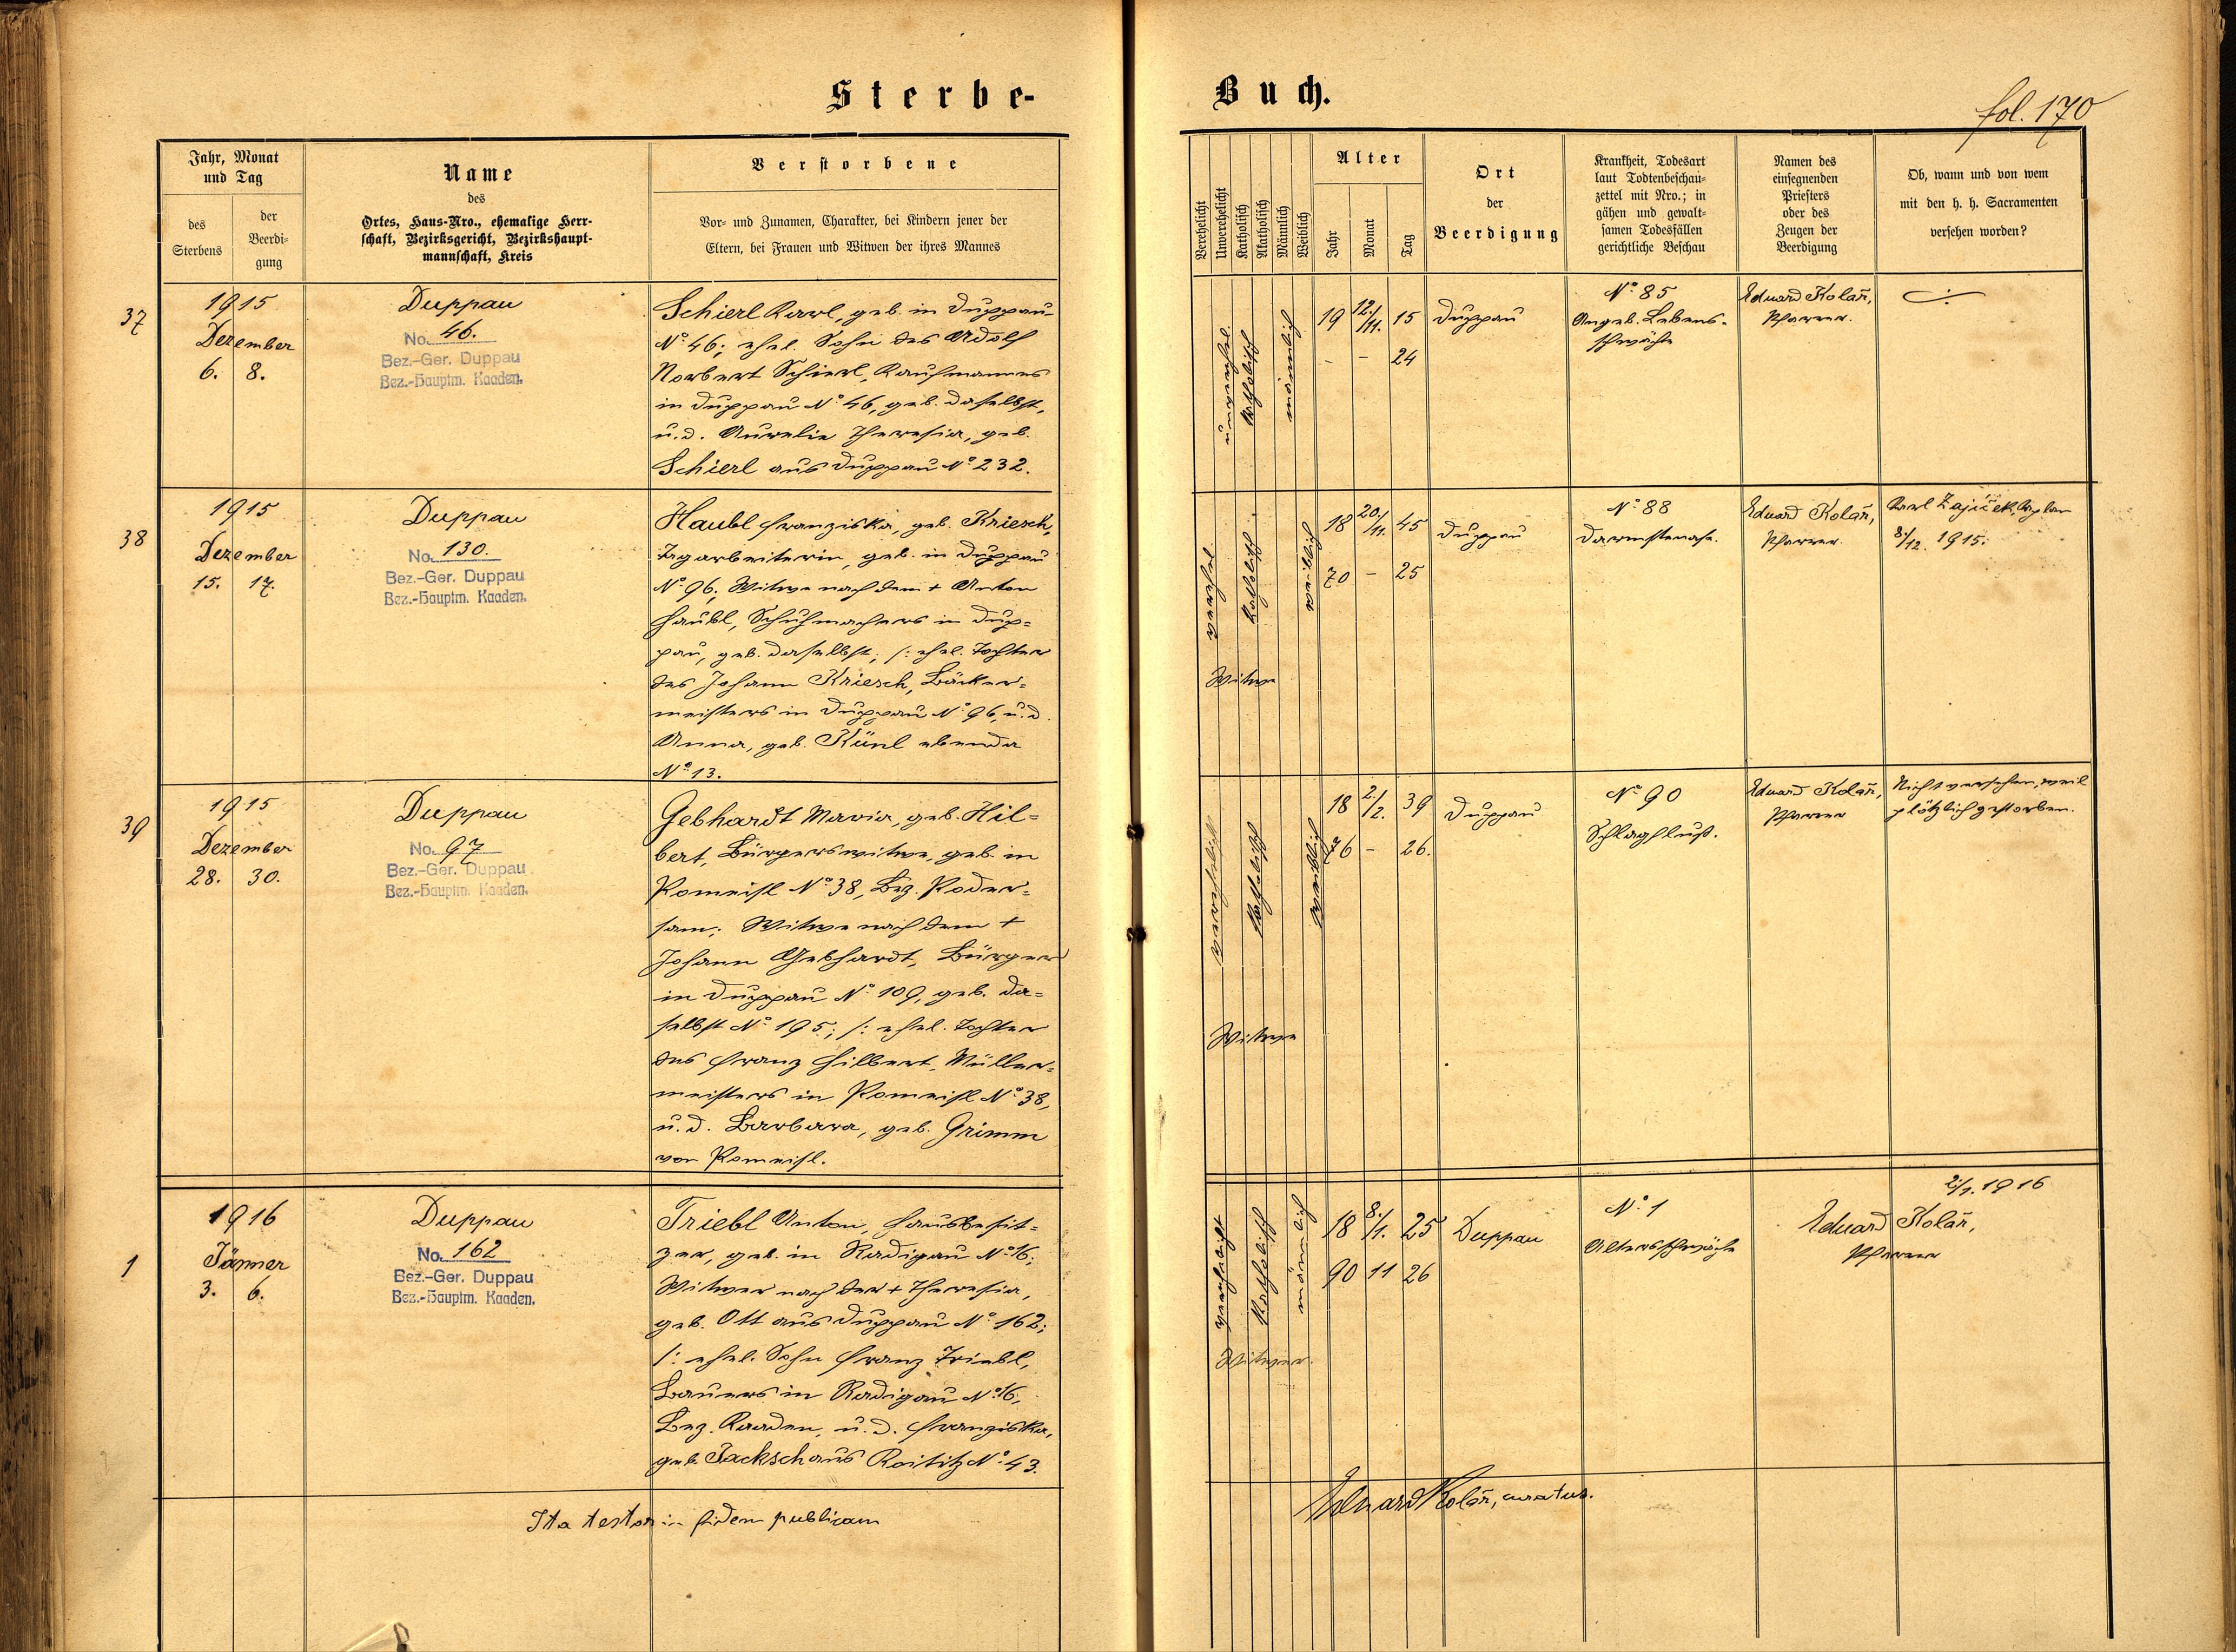 Sterbe-
Buch.
fol. 170
Jahr, Monat
und Tag
des
Sterbens
der
Beerdi-
gung
Name
des
Ortes, Haus-Nro., ehemalige Herr-
schaft, Bezirksgericht, Bezirkshaupt-
mannschaft, Kreis
Verstorbene
Vor- und Zunamen, Charakter, bei Kindern jener der
Eltern, bei Frauen und Witwen der ihres Mannes
Verehelicht
Unverehelicht
Katholisch
Akatholisch
Männlich
Weiblich
Alter
Jahr
Monat
Tag
Ort
der
Beerdigung
Krankheit, Todesart
laut Todtenbeschau-
zettel mit Nro.; in
gähen und gewalt-
samen Todesfällen
gerichtliche Beschau
Namen des
einsegnenden
Priesters
oder des
Zeugen der
Beerdigung
Ob, wann und von wem
mit den h. h. Sacramenten
versehen worden?
37
1915
Dezember
6. 8.
Duppau
No. 46.
Bez.-Ger. Duppau
Bez.-Hauptm. Kaaden.
Schierl Karl, geb. in Duppau
N° 46; ehel. Sohn des Adolf
Norbert Schierl, Kaufmannes
in Duppau N° 46, geb. daselbst,
u. d. Aurelia Theresia, geb.
Schierl aus Duppau N° 232.
unverehel.
katholisch
männlich
19 12./11. 15
- - 24
Duppau
N° 85
Angeb. Lebens-
schwäche
Eduard Kolař,
Pfarrer.
38
1915
Dezember
15. 17.
Duppau
No. 130.
Bez.-Ger. Duppau
Bez.-Hauptm. Kaaden.
Haubl Franziska, geb. Kriesch,
Tagarbeiterin, geb. in Duppau
N° 96; Witwe nach dem + Anton
Haubl, Schuhmachers in Dup-
pau, geb. daselbst; /: ehel. Tochter
des Johann Kriesch, Bäcker-
meisters in Duppau N° 96, u. d.
Anna, geb. Künl ebenda
N° 13.
verehel.
katholisch
weiblich
Witwe
18 20./11. 45
70 - 25
Duppau
N° 88
Darmstenose.
Eduard Kolař,
Pfarrer.
Karl Zajíček, Kaplan
8/12. 1915.
39
1915
Dezember
28. 30.
Duppau
No. 97
Bez.-Ger. Duppau
Bez.-Hauptm. Kaaden.
Gebhardt Maria, geb. Hil-
bert, Bürgerswitwe, geb. in
Pomeisl N° 38, Bez. Poder-
sam; Witwe nach dem +
Johann Gebhardt, Bürger
in Duppau N° 109, geb. da-
selbst N° 195; /: ehel. Tochter
des Franz Hilbert, Müller-
meisters in Pomeisl N° 38,
u. d. Barbara, geb. Grimm
von Pomeisl.
verehelicht
katholisch
weiblich
Witwe
18 2/2. 39
76 - 26.
Duppau
N° 90
Schlagfluß.
Eduard Kolař,
Pfarrer
Nicht versehen, weil
plötzlich gestorben.
1
1916
Jänner
3. 6.
Duppau
No. 162
Bez.-Ger. Duppau
Bez.-Hauptm. Kaaden.
Triebl Anton, Hausbesit-
zer, geb. in Radigau N° 16;
Witwer nach der + Theresia,
geb. Ott aus Duppau N° 162;
/: ehel. Sohn Franz Triebl,
Bauers in Radigau N° 16,
Bez. Kaaden, u. d. Franziska,
geb. Jacksch aus Roititz N° 43.
verehelicht
katholisch
männlich
Witwer.
18 8./1. 25
90 11 26
Duppau
N° 1
Altersschwäche
2/1. 1916
Eduard Kolař,
Pfarrer
Ita testor in fidem publicam
Eduard Kolař, curatus.